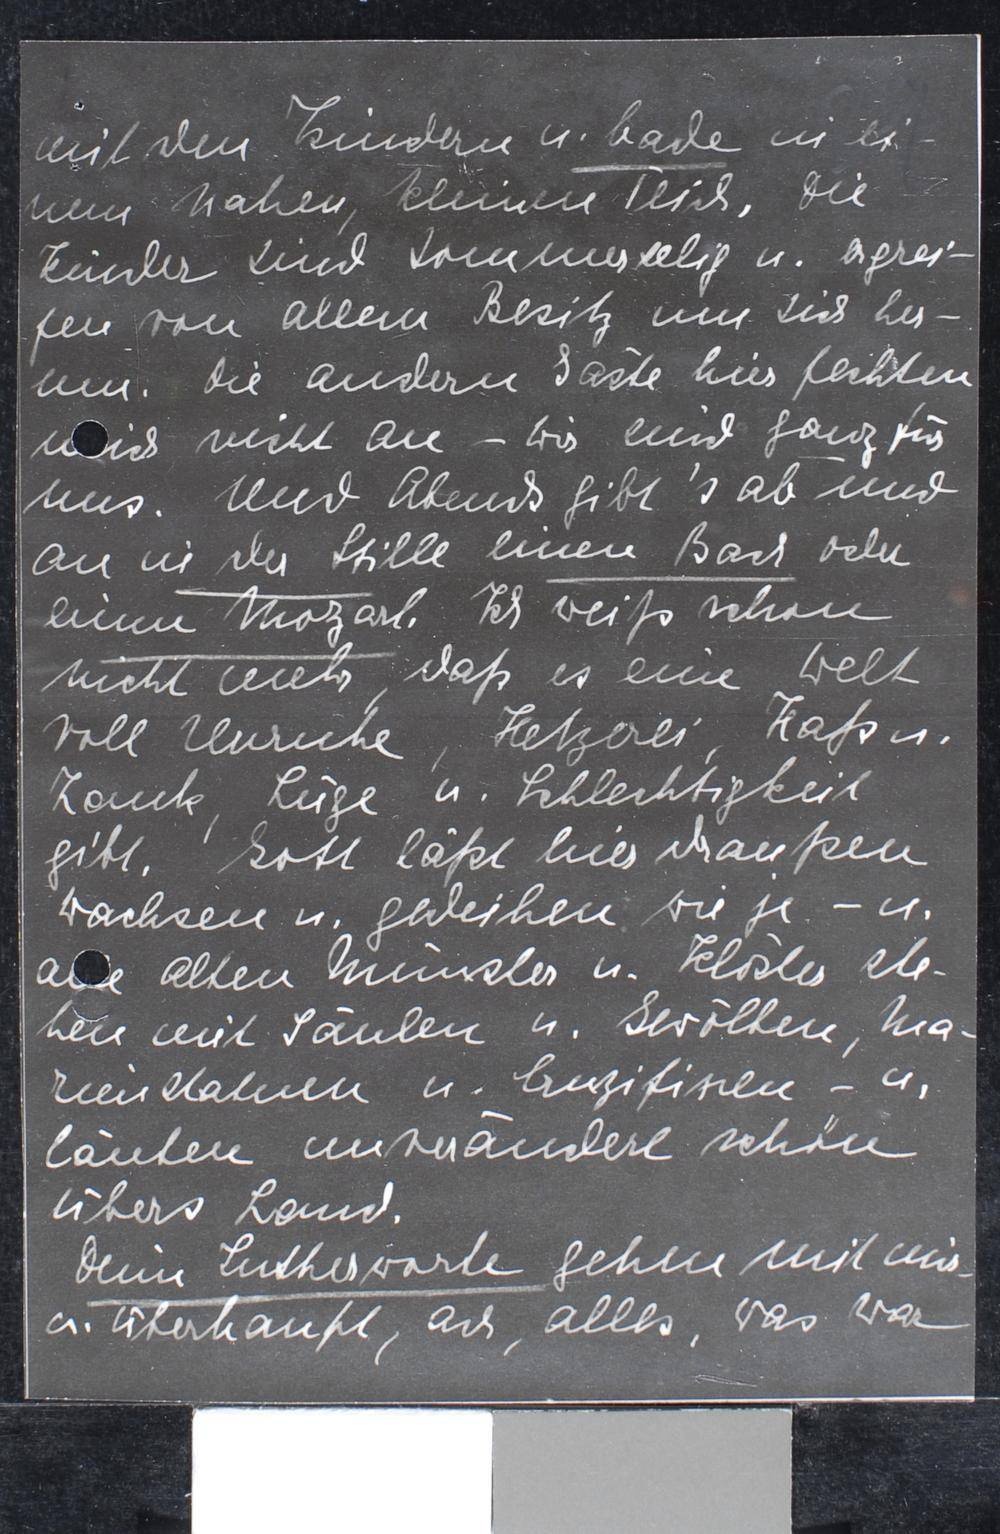 mit den Kindern u. bade in ei-
nem nahen, kleinen Teich. Die
Kinder sind sommerselig u. ergrei-
fen von allem Besitz um sich her-
um. Die andern Gäste hier fechten
mich nicht an – wir sind ganz für
uns. Und Abends gibt's ab und
an in der Stille einen Bach oder
einen Mozart. Ich weiß schon
nicht mehr, daß es eine Welt
voll Unruhe, Hetzerei, Haß u.
Zank, Lüge u. Schlechtigkeit
gibt. Gott läßt hier draußen
wachsen u. gedeihen wie je – u.
alle alten Münster u. Klöster ste-
hen mit Säulen u. Gewölben, Ma-
rienstatuen u. Cruzifixen – u.
läuten unverändert schön
übers Land.
Deine Lutherworte gehen mit mir
u. überhaupt, ach, alles, was war